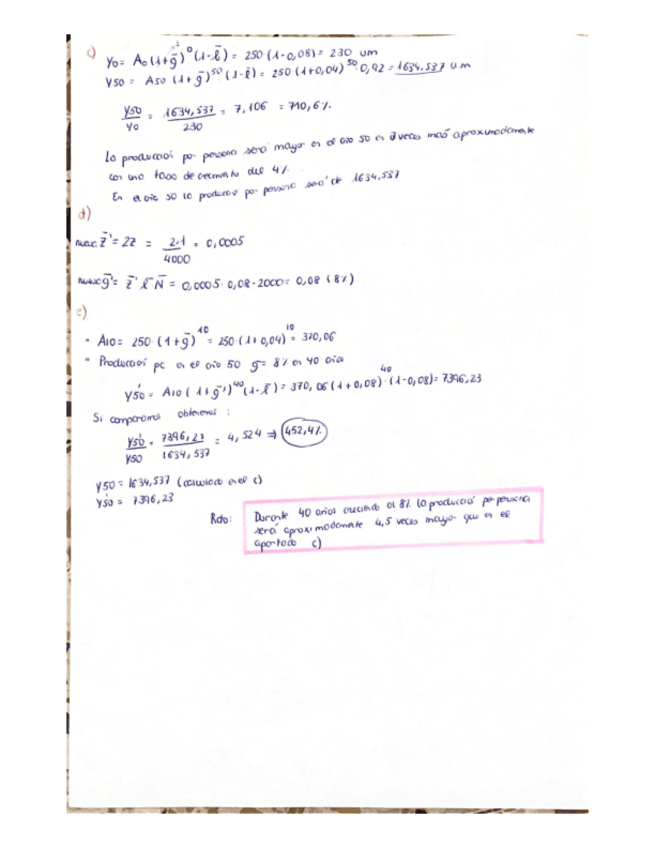 c) y0 = A0(1+g̅)^0(1-l̅) = 250 (1-0,08) = 230 um
y50 = A50 (1+g̅)^50 · (1-l̅) = 250 (1+0,04)^50 · 0,92 = 1634,537 u.m
y50/y0 = 1634,537/230 = 7,106 = 710,6%
La producción por persona será mayor en el año 50 en 7 veces más aproximadamente
con una tasa de crecimiento del 4%
En el año 50 la producción por persona será de 1634,537
d)
z̅' = 2z = 2·1/4000 = 0,0005
g̅' = z̅' l̅ N̅ = 0,0005 · 0,08 · 2000 = 0,08 (8%)
e)
• A10 = 250 · (1+g̅)^10 = 250 · (1+0,04)^10 = 370,06
• Producción pc en el año 50 g = 8% en 40 años
y'50 = A10 (1+g̅')^40 (1-l̅) = 370,06 (1+0,08)^40 · (1-0,08) = 7396,23
Si comparamos obtenemos :
y'50/y50 = 7396,23/1634,537 = 4,524 ⇒ 452,4%
y50 = 1634,537 (calculado en el c)
y'50 = 7396,23
Rdo: Durante 40 años creciendo al 8% la producción por persona
será aproximadamente 4,5 veces mayor que en el
apartado c)